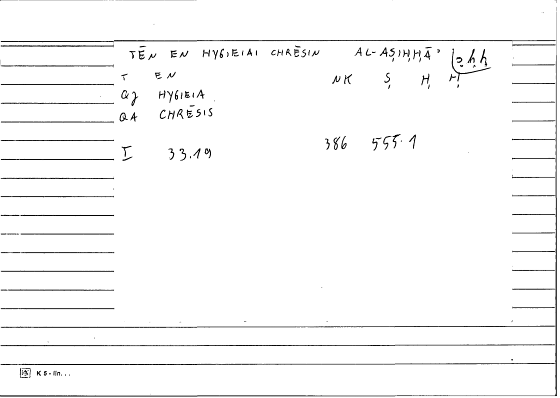 TĒN EN HYGIEIAI CHRĒSIN AL-AṢIḤḤĀʾ ṣḥḥ
T EN NK Ṣ Ḥ Ḥ
QJ HYGIEIA
QA CHRĒSIS
I 33.19 386 555.1
K 5 - lin...